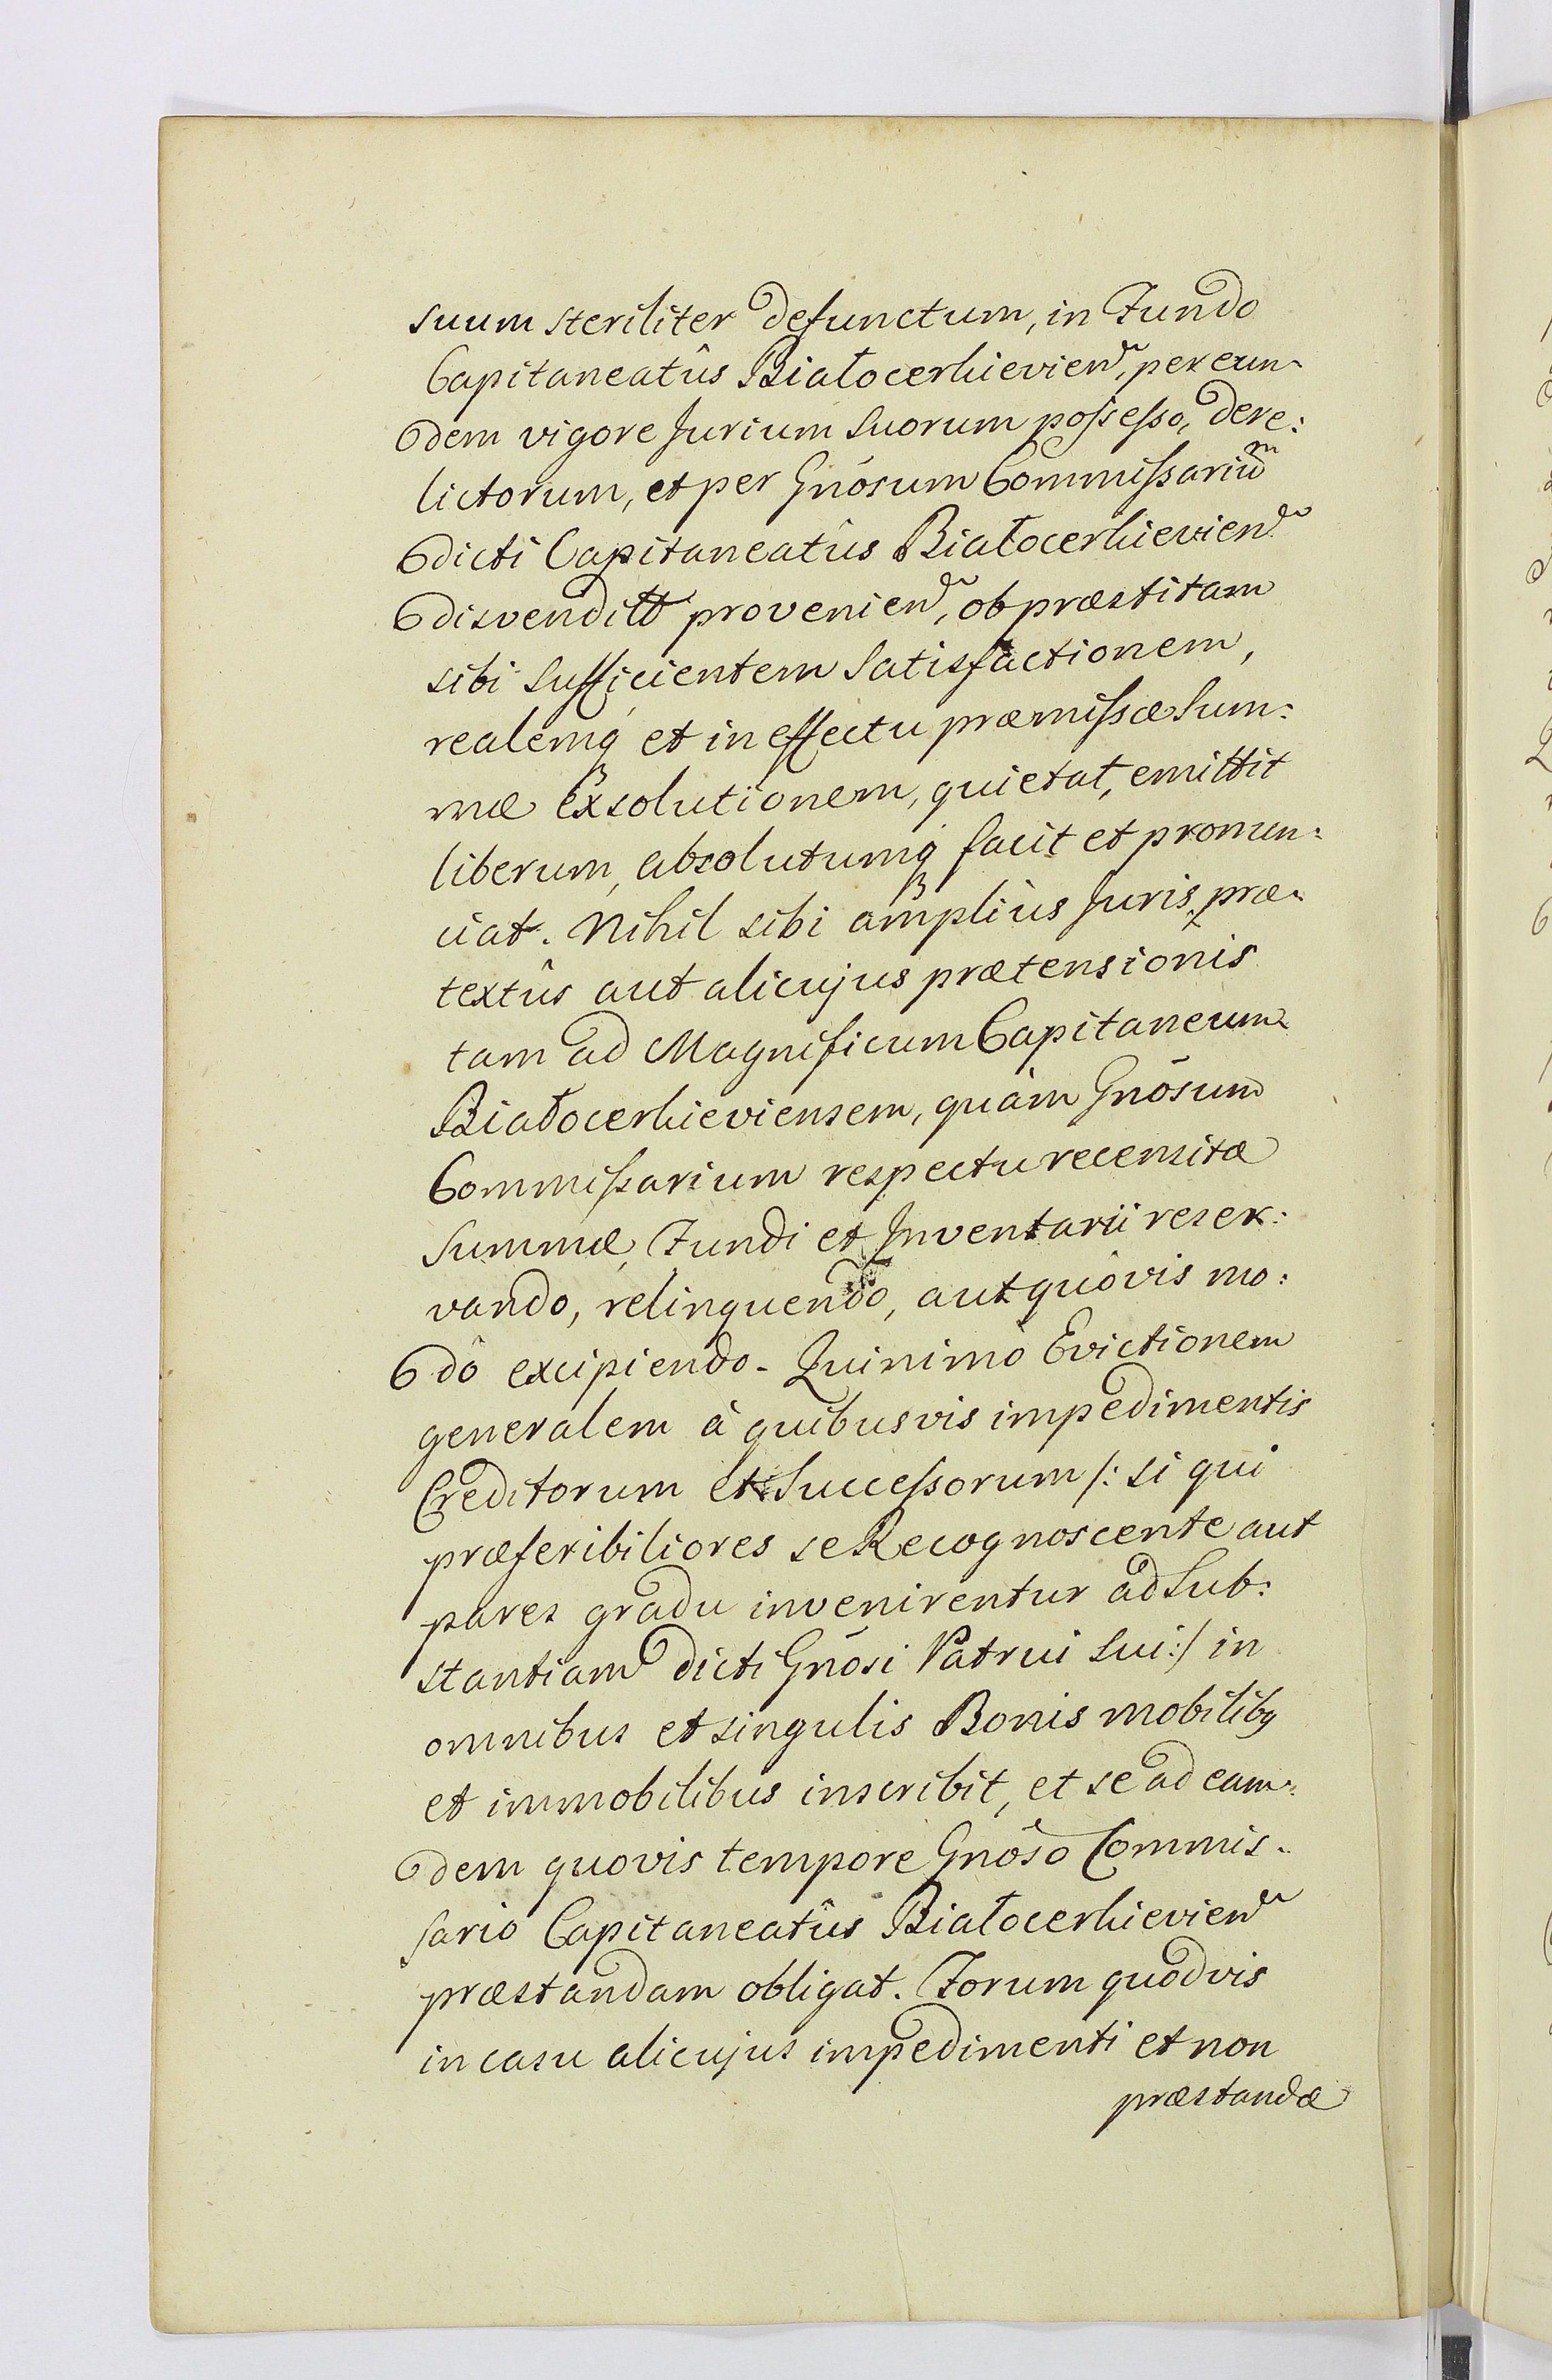 suum steriliter defunctum, in Fundo
Capitaneatûs Białocerkievien, per eun-
dem vigore Jurium suorum possesso, dere:
lictorum, et per Gnōsum Commissariūm
dicti Capitaneatûs Białocerkievien
disvenditt provenien, ob præstitam
sibi sufficientem satisfactionem,
realemq et in effectu præmissæ Sum:
mæ exsolutionem, quietat, emittit
liberum, absolutumq facit et pronun:
ciat. Nihil sibi amplius Juris, præ-
textûs aut alicujus prætensionis
tam ad Magnificum Capitaneum
Białocerkieviensem, quàm Gnōsum
Commissarium respectu recensitæ
Summæ, Fundi et Inventarii reser:
vando, relinquendo, aut quôvis mo:
dô excipiendo. Quinimò Evictionem
generalem à quibusvis impedimentis
Creditorum et Successorum /: si qui
præferibiliores se Recognoscente aut
pares gradu invenirentur ad Sub:
stantiam dicti Gnōsi Patrui sui :/ in
omnibus et singulis Bonis mobilibq
et immobilibus inscribit, et se ad eam:
dem quovis tempore Gnōso Commis-
sario Capitaneatûs Białocerkievien
præstandam obligat. Forum quodvis
in casu alicujus impedimenti et non
præstandæ